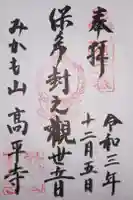 奉拝
令和三年
十二月五日
保多封之観世音
みかも山
高平寺